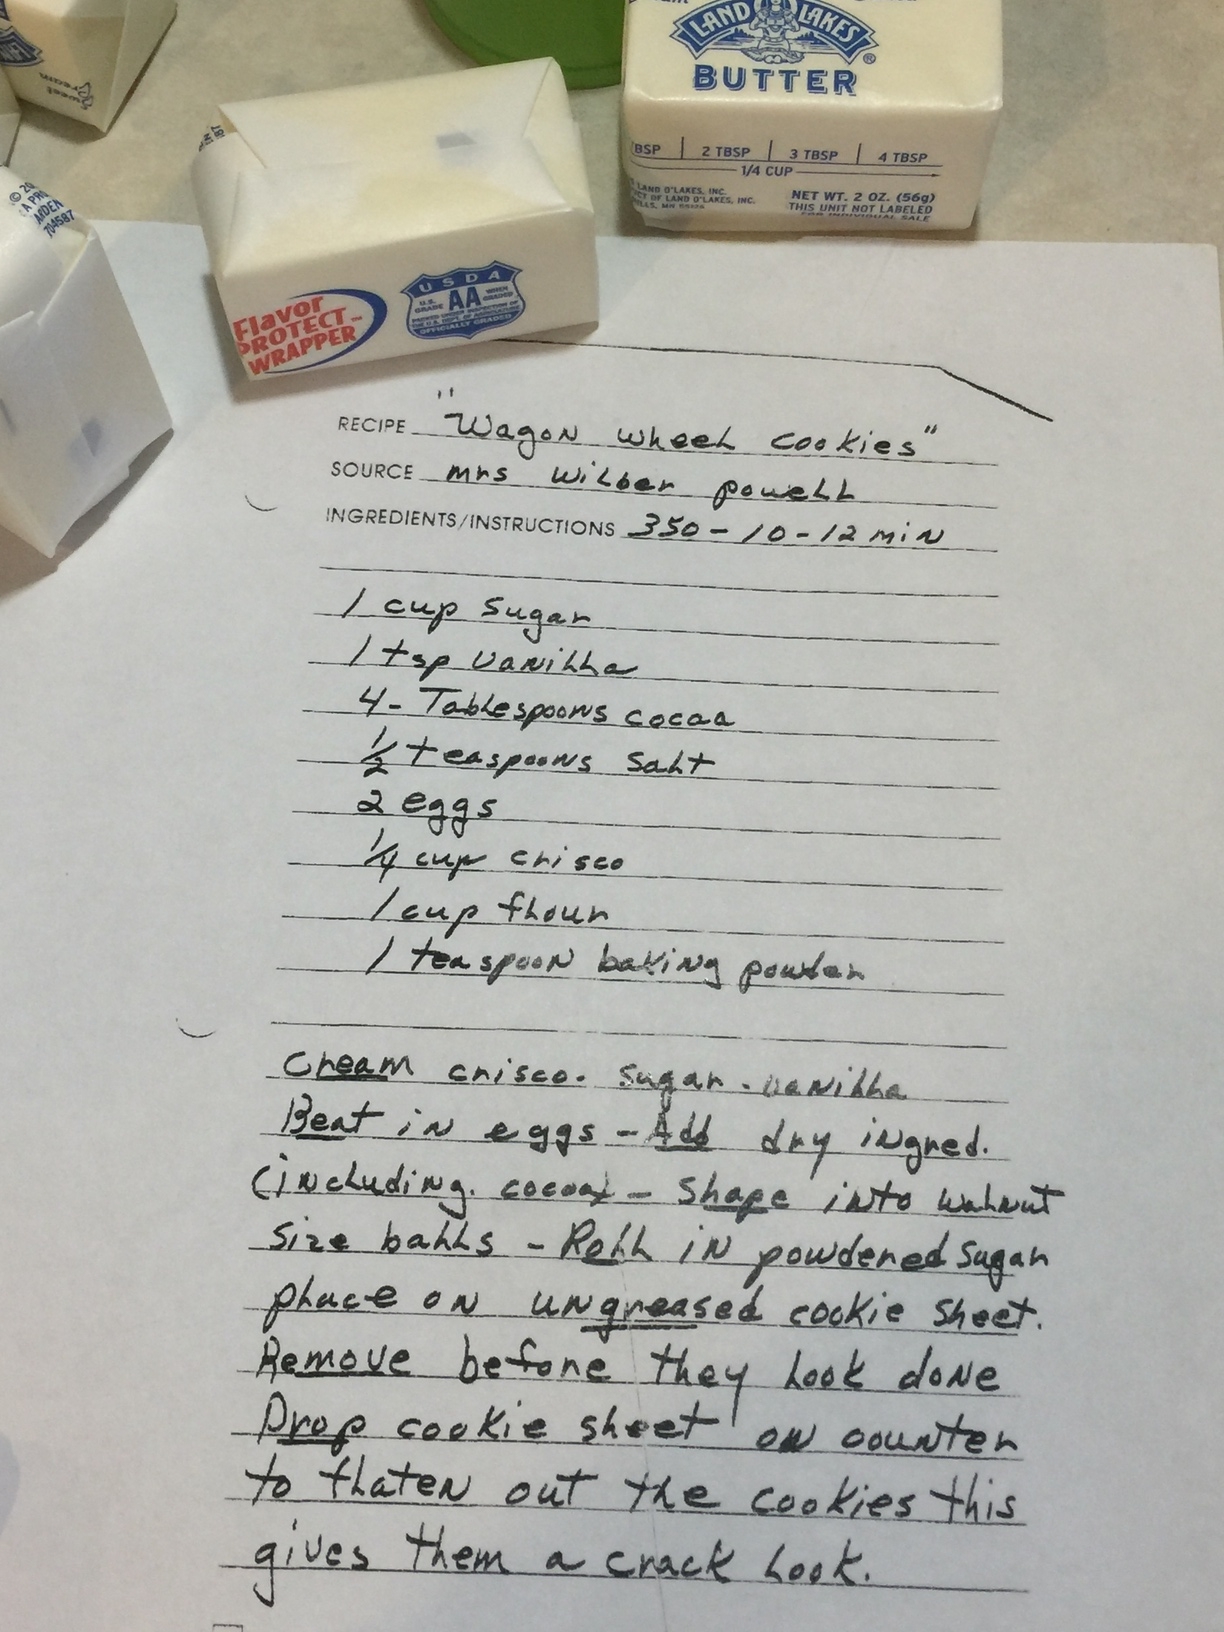 LAND O LAKES®
BUTTER
TBSP 2 TBSP 3 TBSP 4 TBSP
1/4 CUP
LAND O'LAKES, INC.
OF LAND O'LAKES, INC.
NET WT. 2 OZ. (56g)
THIS UNIT NOT LABELED
FOR INDIVIDUAL SALE
Sweet
Cream
704587
Flavor
PROTECT-
WRAPPER
USDA
U.S. GRADE AA WHEN GRADED
OFFICIALLY GRADED
RECIPE "Wagon wheel cookies"
SOURCE mrs wilber powell
INGREDIENTS/INSTRUCTIONS 350-10-12 min
1 cup sugar
1 tsp vanilla
4- Tablespoons cocoa
1/2 teaspoons salt
2 eggs
1/4 cup crisco
1 cup flour
1 teaspoon baking powder
Cream crisco. sugar. vanilla
Beat in eggs - Add dry ingred.
(including. cocoa) - Shape into walnut
size balls - Roll in powdered sugar
place on ungreased cookie sheet.
Remove before they look done
Drop cookie sheet on counter
to flaten out the cookies this
gives them a crack look.